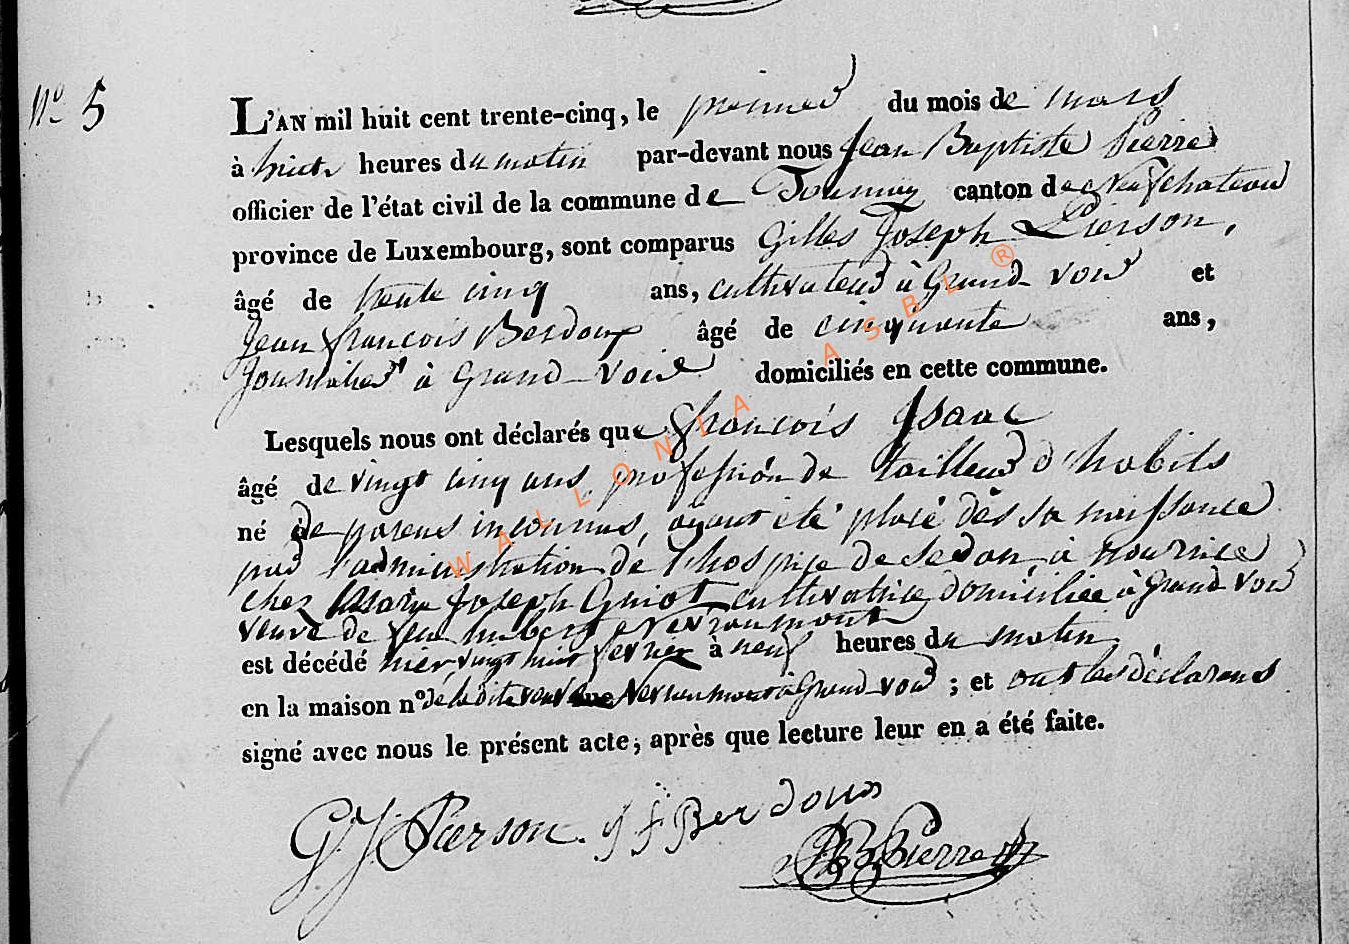 N° 5
L'AN mil huit cent trente-cinq, le premier du mois de mars
à huit heures du matin par-devant nous Jean Baptiste Pierre
officier de l'état civil de la commune de Tournay canton de Neufchateau
province de Luxembourg, sont comparus Gilles Joseph Pierson,
âgé de trente cinq ans, cultivateur à Grand-voir et
Jean françois Berdoux âgé de cinquante ans,
Journalier à Grand-voir domiciliés en cette commune.
Lesquels nous ont déclarés que françois Isaac
âgé de vingt cinq ans, profession de tailleur d'habits
né de parens inconnus, ayant été placé dès sa naissance
par l'administration de l'hospice de Sedan, à nourrice
chez Marie Joseph Guiot cultivatrice domiciliée à Grand voir
veuve de feu hubert Nevraumont
est décédé hier, vingt huit fevrier à neuf heures du matin
en la maison n° de la dite veuve Nevraumont à Grand-voir ; et ont les déclarans
signé avec nous le présent acte, après que lecture leur en a été faite.
G J Pierson. J f Berdoux
JB Pierre
WALLONIA ASBL ®